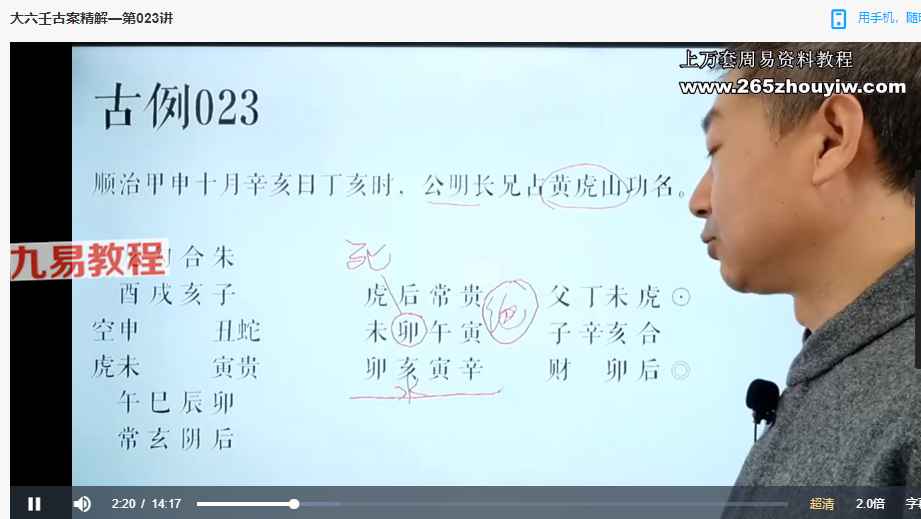 大六壬古案精解—第023讲
用手机，随
上万套周易资料教程
www.265zhouyiw.com
古例023
顺治甲申十月辛亥日丁亥时．公明长兄占黄虎山功名。
九易教程
合朱
死
酉戌亥子
虎后常贵
父丁未虎⊙
空申 丑蛇
未卯午寅
子辛亥合
虎未 寅贵
卯亥寅辛
财 卯后◎
水
午巳辰卯
常玄阴后
2:20 / 14:17
超清
2.0倍